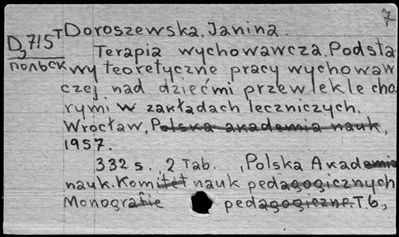 7
Д 715 т Doroszewska, Janina.
польск
Terapia wychowawcza. Podsta
wy teoretyczne pracy wychowaw
czej nad dziećmi przewlekle cho
rymi w zakładach leczniczych.
Wrocław, Polska akademia nauk,
1957.
332 s. 2 Tab. , Polska Akademia
nauk. Komitet nauk pedagogicznych
Monografie pedagogiczne. T 6,